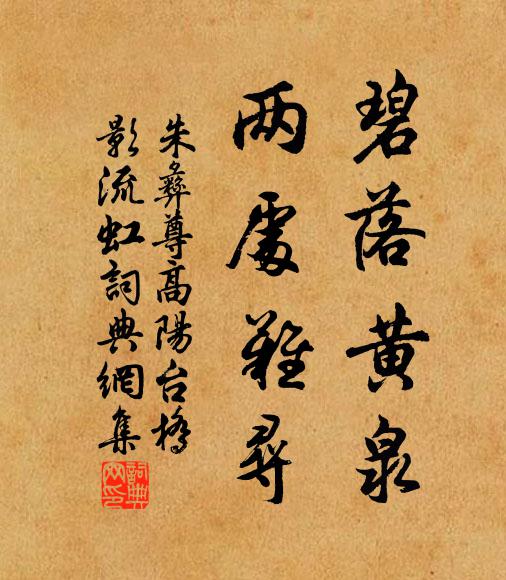 碧落黄泉
两處難尋
朱彝尊高陽台橋
影流虹詞典網集
詞典网印